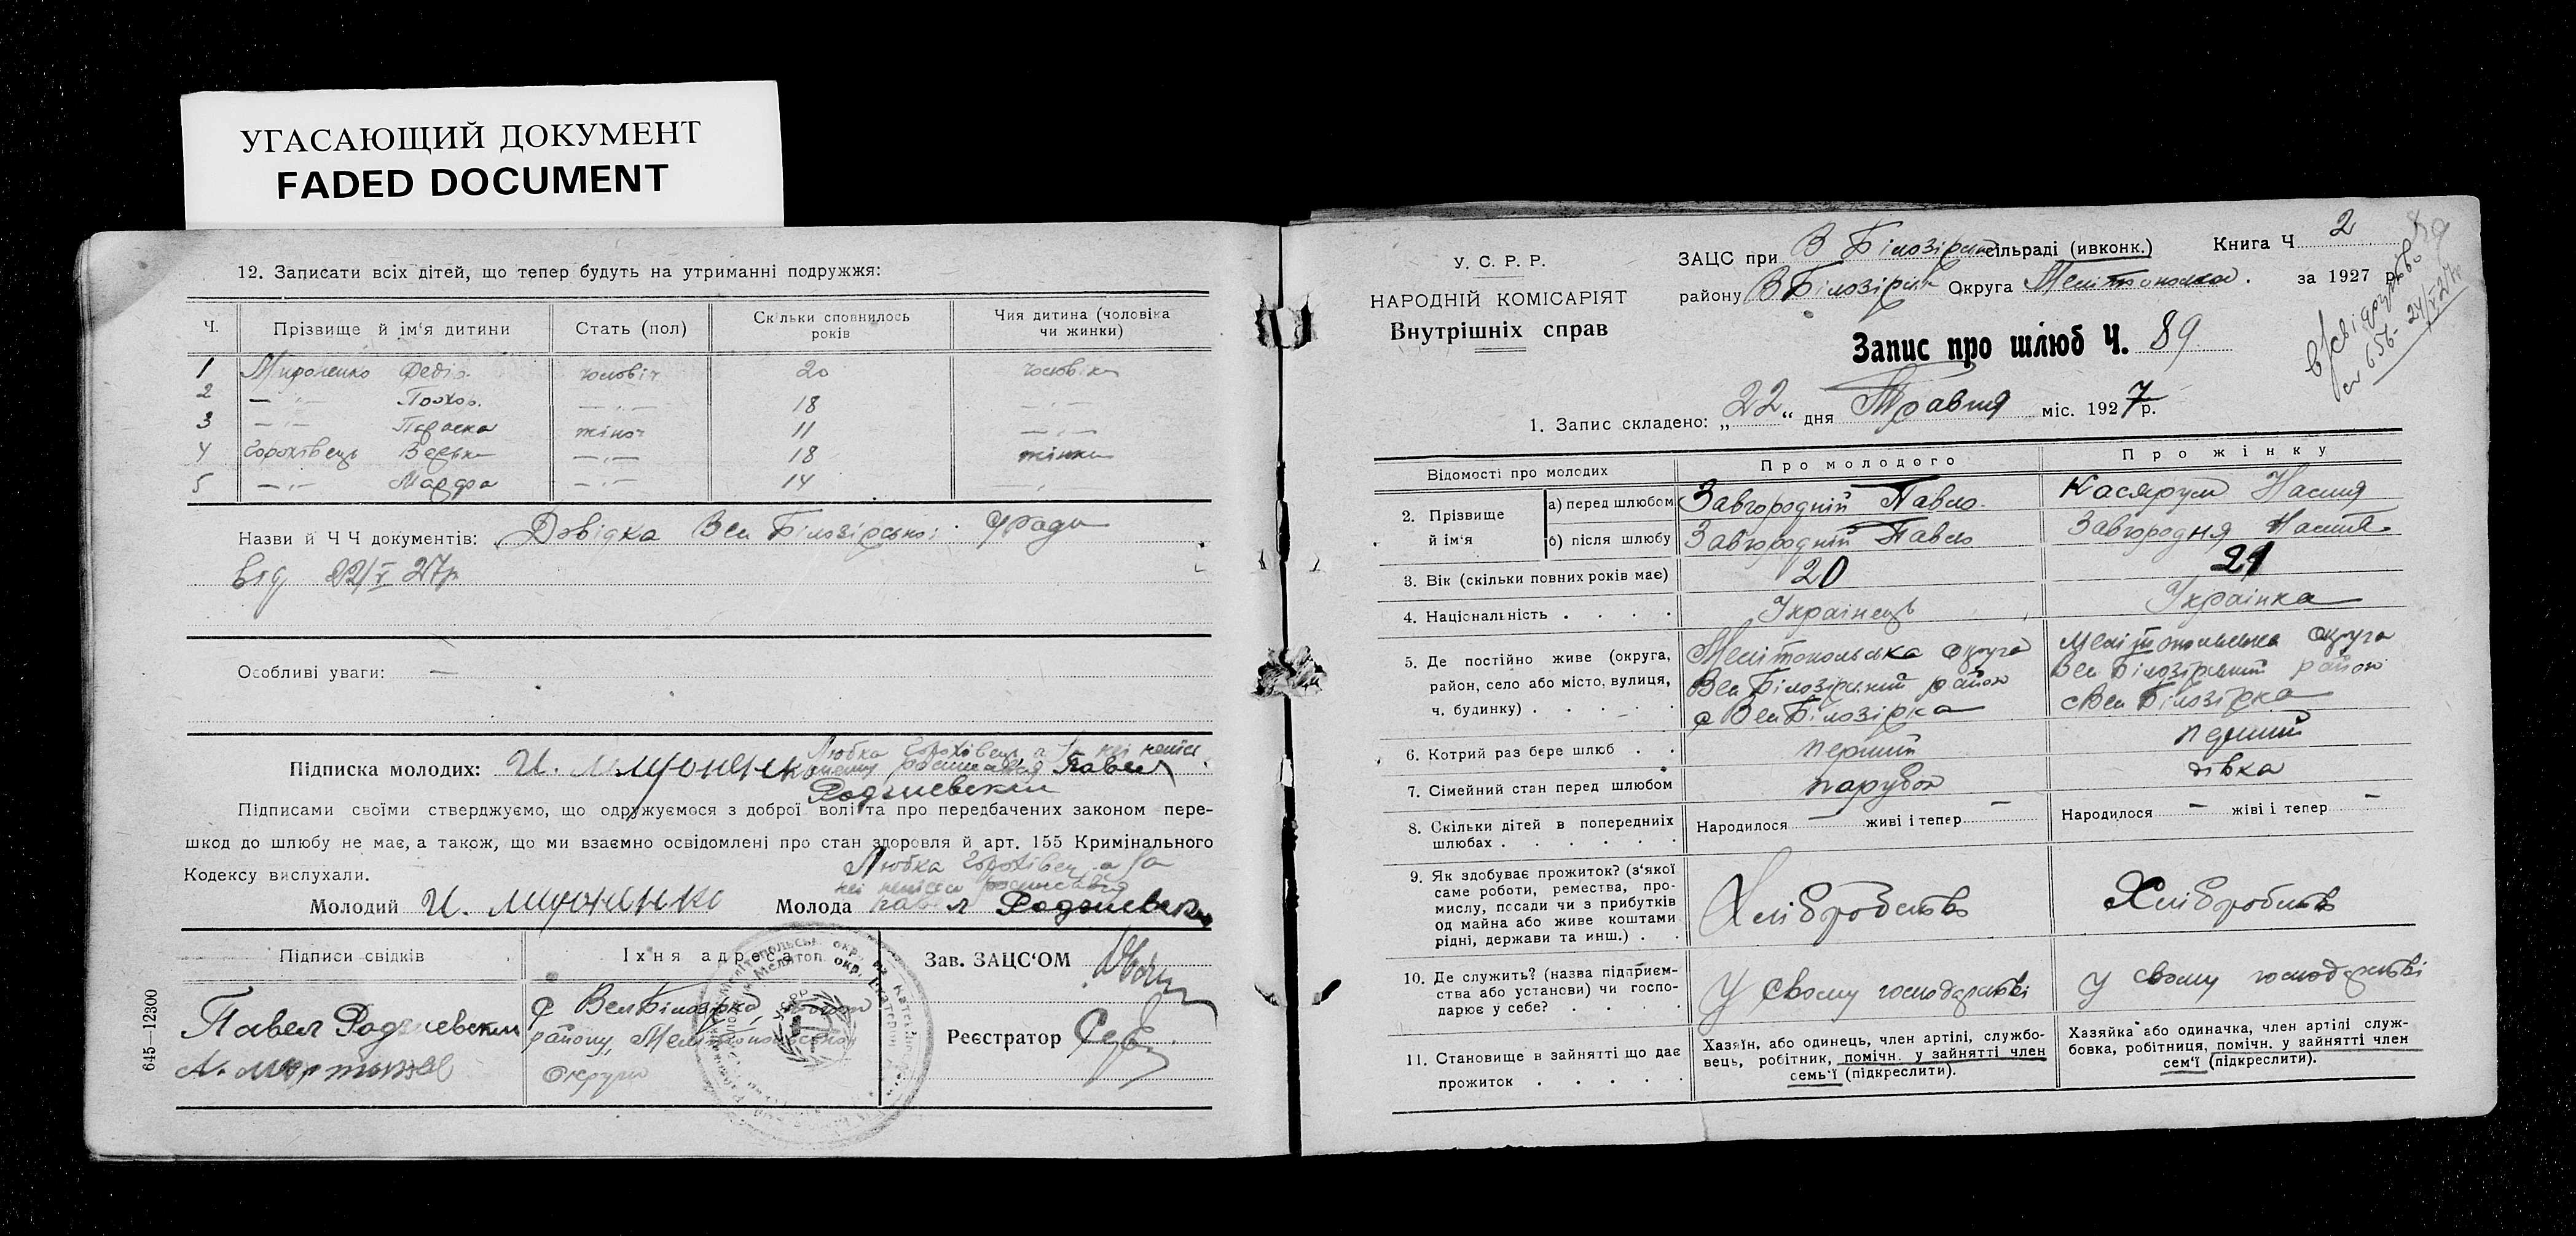 УГАСАЮЩИЙ ДОКУМЕНТ
FADED DOCUMENT
12. Записати всіх дітей, що тепер будуть на утриманні подружжя:
Ч. Прізвище й ім'я дитини Стать (пол) Скільки сповнилось років Чия дитина (чоловіка чи жинки)
1 Мироненко Федір чоловіч 20 чоловіка
2 — " — 18 — " —
3 — " — Параска жіноч 11 — " —
4 Горохівець 18 жінки
5 — " — Марфа — " — 14 — " —
Назви й Ч Ч документів: Довідка Вел Білозірської С/ради
від 22/V 27р
Особливі уваги: —
Любка Горохівець а за неї
Підписка молодих: И. Мироненко росписався Павел
Родзиевский
Підписами своїми стверджуємо, що одружуємося з доброї волі та про передбачених законом пере-
шкод до шлюбу не має, а також, що ми взаємно освідомлені про стан здоровля й арт. 155 Кримінального
Кодексу вислухали.
Любка Горохівец а за
неї росписався
Молодий И. Мироненко Молода Павел Родзиевский
Підписи свідків Їхня адреса Зав. ЗАЦС'ОМ
Павел Родзиевский с ВелБілозірка,
району, Мелітопольської
округи
Реєстратор
645—12300
У. С. Р. Р.
НАРОДНІЙ КОМІСАРІЯТ
Внутрішніх справ
ЗАЦС при В Білозірській сільраді (ивконк.) Книга Ч 2
району В Білозірськ Округа Мелітопольска. за 1927 р.
89
в/свідоцтво
№ 656 - 24/V 27р
Запис про шлюб Ч. 89
1. Запис складено: „22“ дня Травня міс. 1927 р.
Відомості про молодих Про молодого Про жінку
2. Прізвище й ім'я а) перед шлюбом Завгородній Павло Настя
б) після шлюбу Завгородній Павло Завгородня Настя
3. Вік (скільки повних років має) 20 21
4. Національність . . . . Українець Українка
5. Де постійно живе (округа, Мелітопольська округа Мелітопольська округа
район, село або місто, вулиця, Вел Білозірський район Вел Білозірський район
ч. будинку) . . . . . с Вел Білозірка с Вел Білозірка
6. Котрий раз бере шлюб . . перший перший
7. Сімейний стан перед шлюбом парубок дівка
8. Скільки дітей в попередніх Народилося — живі і тепер — Народилося — жіві і тепер —
шлюбах . . . . . .
9. Як здобуває прожиток? (з'якої
саме роботи, ремества, про-
мислу, посади чи з прибутків Хліборобство Хліборобство
од майна або живе коштами
рідні, держави та инш.) . .
10. Де служить? (назва підприєм-
ства або установи) чи госпо- У своему господарстві У своему господарстві
дарює у себе? . . . .
11. Становище в зайнятті що дає
прожиток . . . . .
Хазяїн, або одинець, член артілі, службо-
вець, робітник, помічн. у зайнятті член
семь'ї (підкреслити).
Хазяйка або одиначка, член артілі служ-
бовка, робітниця, помічн. у зайнятті член
сем'ї (підкреслити).